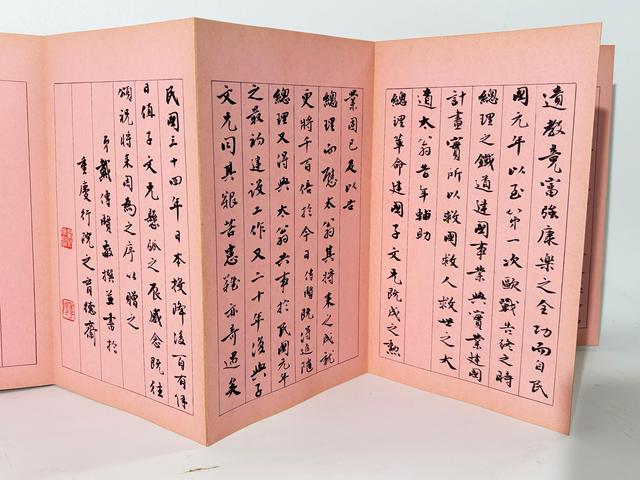 遺教竟富強康樂之全功而自民
國元年以至第一次歐戰告終之時
總理之鐵道建國事業與實業建國
計畫實所以救國救人救世之大
道太翁昔年輔助
總理革命建國子文兄既成之勲
業固已足以告
總理而慰太翁其將來之成就
更將千百倍於今日傳賢既得追隨
總理又得與太翁共事於民國元年
之最初建設工作又二十年後與子
文兄同其艱苦患難亦奇遇矣
民國三十四年日本投降後一百有
日值子文兄懸弧之辰感念既往
頌祝將來因為之序以贈之
弟戴傳賢敬撰並書於
重慶行院之育德齋